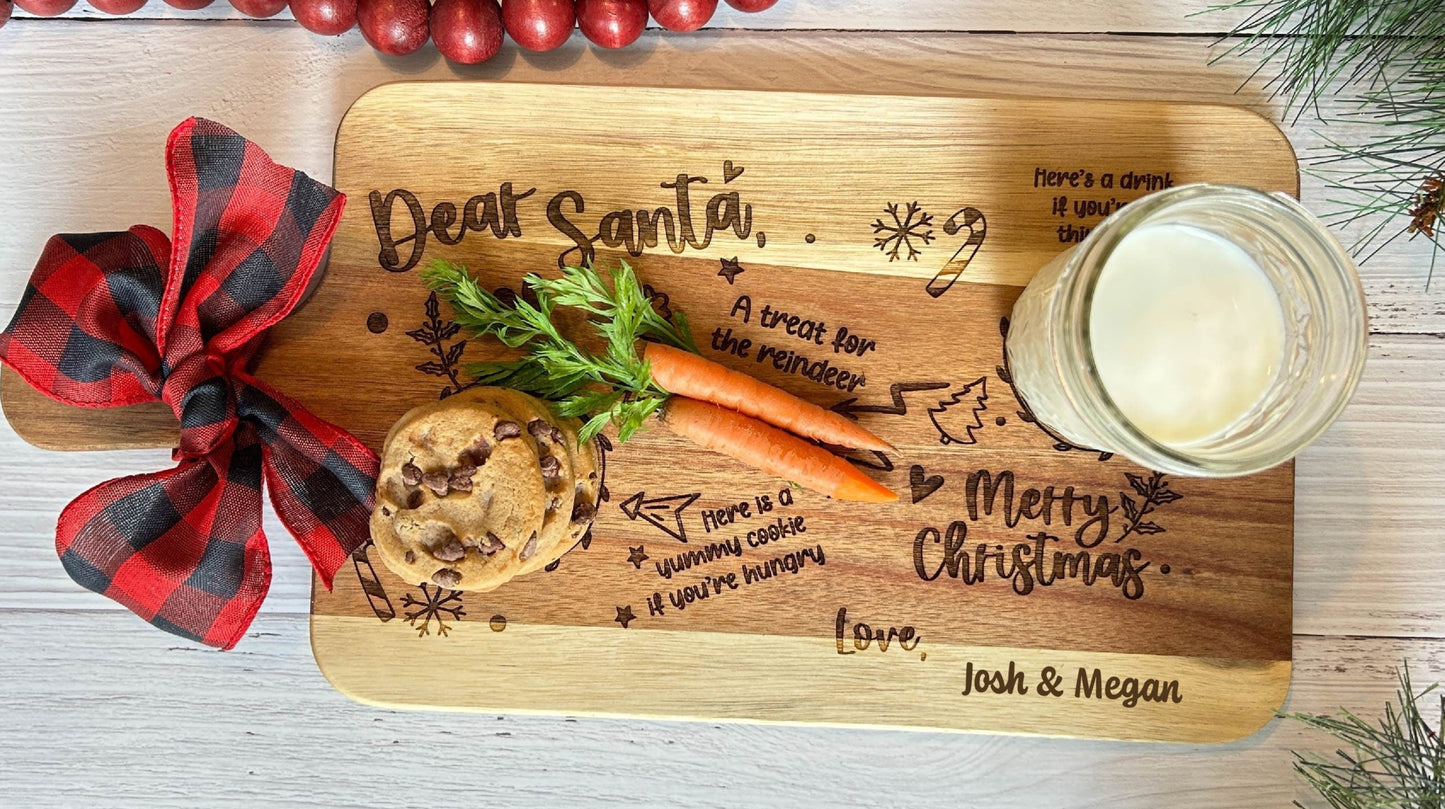 Dear Santa,
Here's a drink
if you're
A treat for
the reindeer
Here is a
yummy cookie
if you're hungry
Merry
Christmas
Love,
Josh & Megan